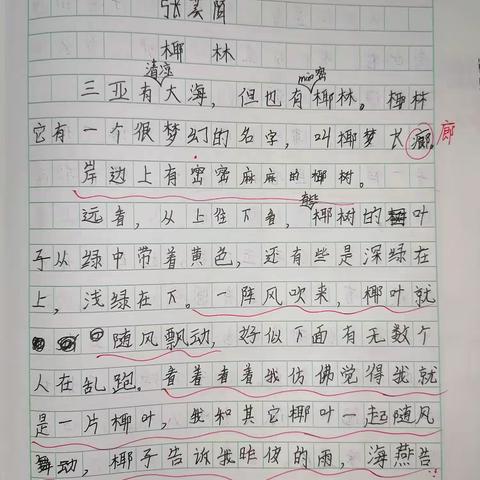 张美茵
椰林
三亚有清凉大海，但也有mio密椰林。椰林
它有一个很梦幻的名字，叫椰梦长廊。廊
岸边上有密密麻麻的椰树。
远看，从上往下看，椰树的叶
子从绿中带着黄色，还有些是深绿在
上，浅绿在下。一阵风吹来，椰叶就
随风飘动，好似下面有无数个
人在乱跑。看着看着我仿佛觉得我就
是一片椰叶，我和其它椰叶一起随风
舞动，椰子告诉我昨夜的雨，海燕告